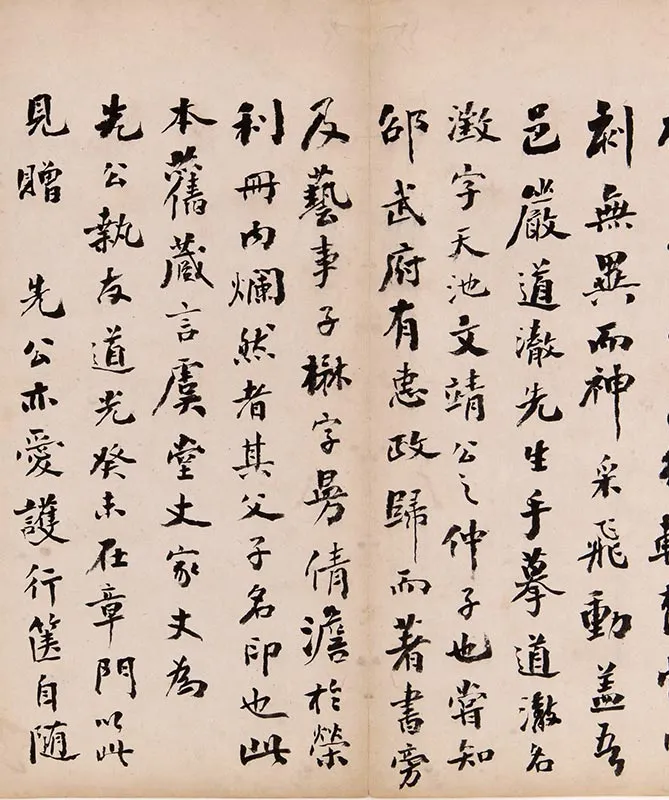 刻無異而神采飛動蓋吾
邑嚴道澈先生手摹道澈名
澂字天池文靖公之仲子也嘗知
邵武府有惠政歸而著書旁
及藝事子楙字曼倩澹於榮
利冊內爛然者其父子名印也此
本舊藏言虞堂丈家丈為
先公執友道光癸未在章門以此
見贈 先公亦愛護行篋自随